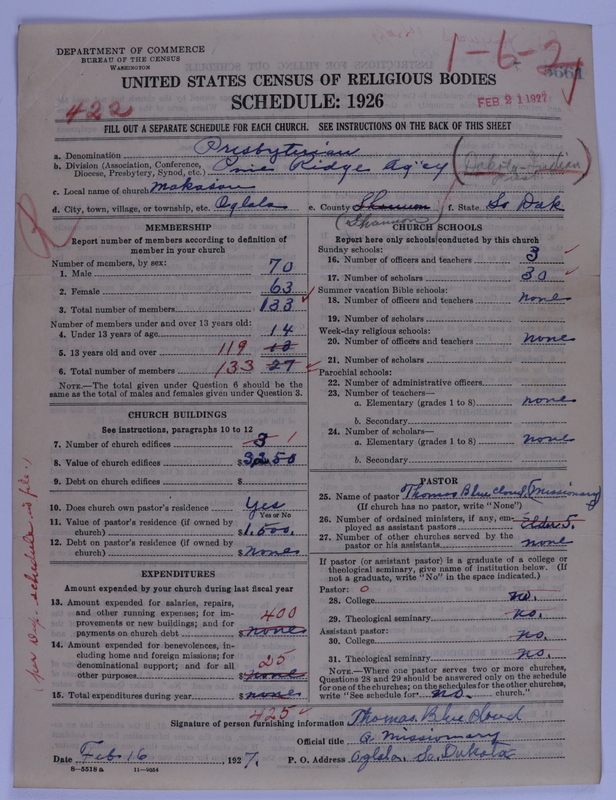 DEPARTMENT OF COMMERCE
BUREAU OF THE CENSUS
WASHINGTON
1-6-2
5661
UNITED STATES CENSUS OF RELIGIOUS BODIES
SCHEDULE: 1926
422
FEB 21 1927
FILL OUT A SEPARATE SCHEDULE FOR EACH CHURCH. SEE INSTRUCTIONS ON THE BACK OF THIS SHEET
a. Denomination Presbyterian
b. Division (Association, Conference, Diocese, Presbytery, Synod, etc.) Pine Ridge Ag'cy (Dakota-Indian
c. Local name of church Makasan
d. City, town, village, or township, etc. Oglala e. County Shannon f. State So Dak
(Shannon)
MEMBERSHIP
Report number of members according to definition of
member in your church
Number of members, by sex:
1. Male 70
2. Female 63
3. Total number of members 133
Number of members under and over 13 years old:
4. Under 13 years of age 14
5. 13 years old and over 119 13
6. Total number of members 133 27
NOTE.—The total given under Question 6 should be
same as the total of males and females given under Question 3.
CHURCH BUILDINGS
See instructions, paragraphs 10 to 12
7. Number of church edifices 3 1
8. Value of church edifices $3250
9. Debt on church edifices $
10. Does church own pastor's residence Yes
Yes or No
11. Value of pastor's residence (if owned by
church) $1,500.
12. Debt on pastor's residence (if owned by
church) $none
EXPENDITURES
Amount expended by your church during last fiscal year
13. Amount expended for salaries, repairs,
and other running expenses; for im-
provements or new buildings; and for
payments on church debt 400 $none
14. Amount expended for benevolences, in-
cluding home and foreign missions; for
denominational support; and for all
other purposes 25 $none
15. Total expenditures during year $none
425
CHURCH SCHOOLS
Report here only schools conducted by this church
Sunday schools:
16. Number of officers and teachers 3
17. Number of scholars 30
Summer vacation Bible schools:
18. Number of officers and teachers none
19. Number of scholars
Week-day religious schools:
20. Number of officers and teachers none
21. Number of scholars
Parochial schools:
22. Number of administrative officers
23. Number of teachers—
a. Elementary (grades 1 to 8) none
b. Secondary
24. Number of scholars—
a. Elementary (grades 1 to 8) none
b. Secondary
PASTOR
25. Name of pastor Thomas Blue cloud (missionary)
(If church has no pastor, write "None")
26. Number of ordained ministers, if any, em-
ployed as assistant pastors Elder 5.
27. Number of other churches served by the
pastor or his assistants none
If pastor (or assistant pastor) is a graduate of a college or
theological seminary, give name of institution below. (If
not a graduate, write "No" in the space indicated.)
Pastor: 0
28. College no.
29. Theological seminary no.
Assistant pastor:
30. College no.
31. Theological seminary no.
NOTE.—Where one pastor serves two or more churches,
Questions 28 and 29 should be answered only on the schedule
for one of the churches; on the schedules for the other churches,
write "See schedule for no. church."
Signature of person furnishing information Thomas Blue Cloud
Official title a. Missionary
Date Feb 16, 1927. P. O. Address Oglala, So. Dakota
8—5518 a 11—9664